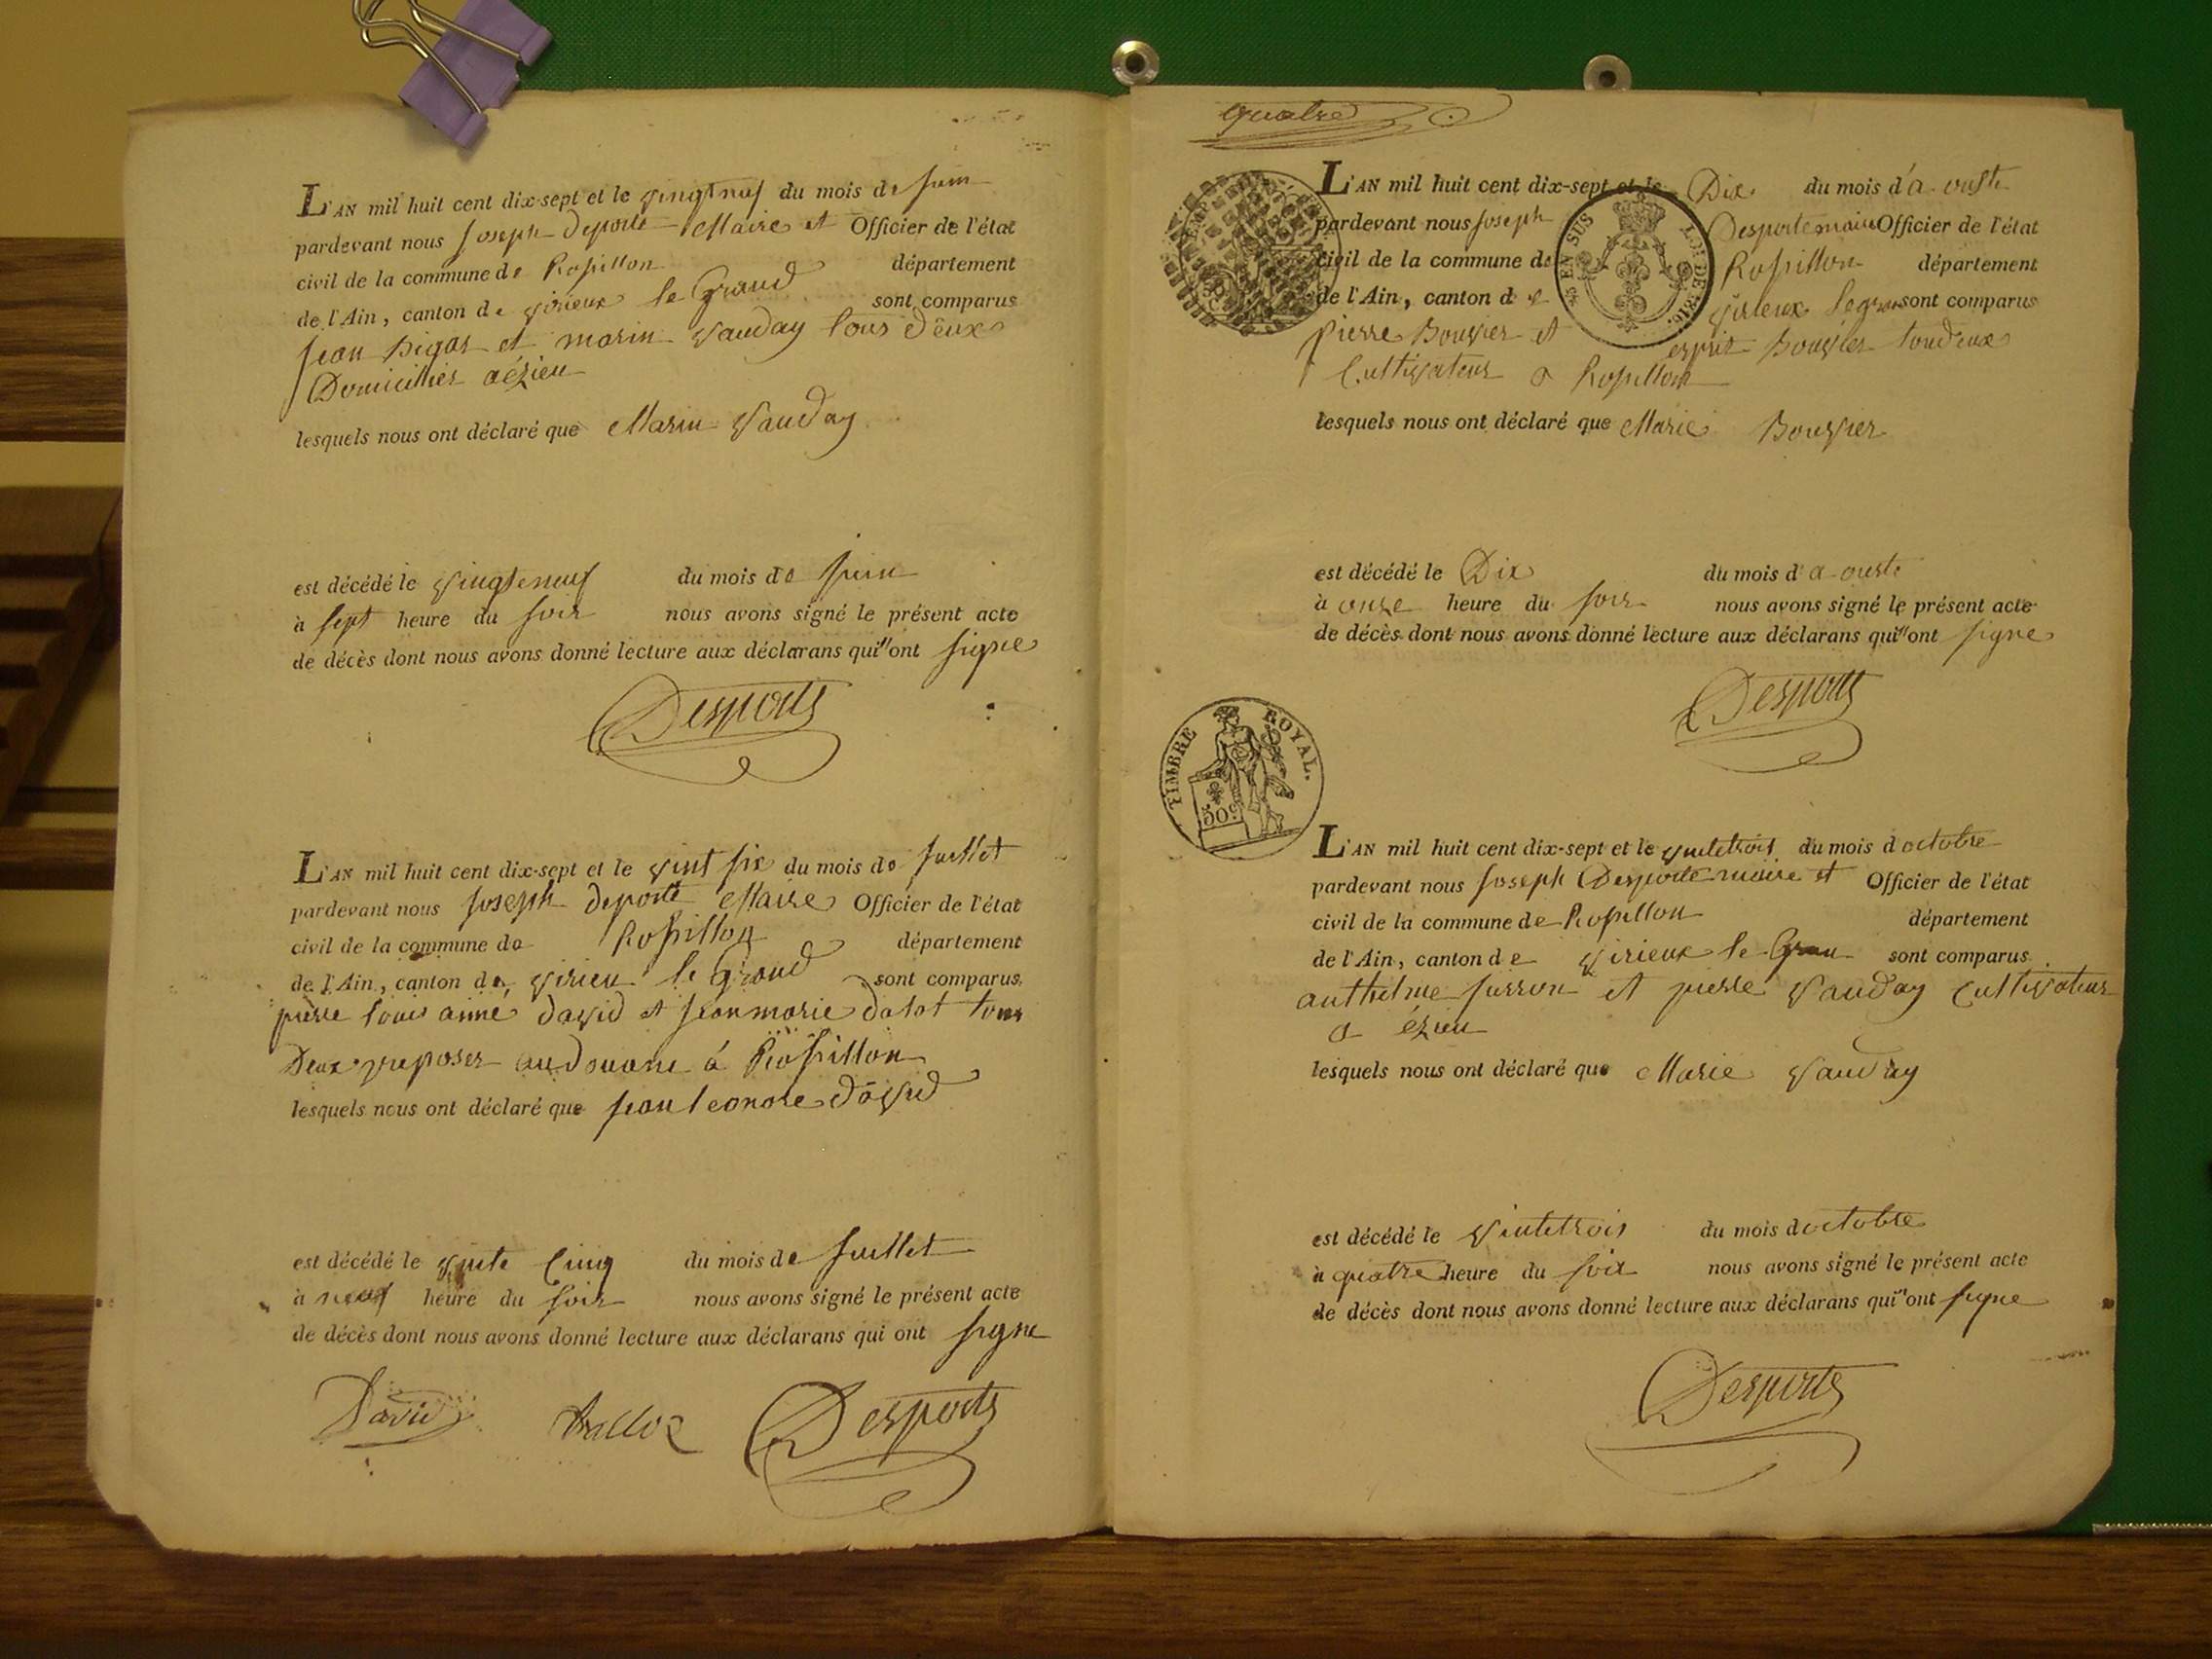 L'AN mil huit cent dix-sept et le vingtneuf du mois de juin
pardevant nous joseph deporte Maire et Officier de l'état
civil de la commune de Rossillon département
de l'Ain, canton de virieux le Grand sont comparus
jean et marin vauday tous deux
Domicilliés aézieu
lesquels nous ont déclaré que Marin vauday
est décédé le vingteneuf du mois de juin
à sept heure du soir nous avons signé le présent acte
de décès dont nous avons donné lecture aux déclarans qui ont signe
Desporte
L'AN mil huit cent dix-sept et le vint six du mois de juillet
pardevant nous joseph deporte Maire Officier de l'état
civil de la commune de Rossillon département
de l'Ain, canton de virieu le Grand sont comparus
pierre louis aimé david et jeanmarie dalot tous
Deux preposer audouane á Rossillon
lesquels nous ont déclaré que jean leonore david
est décédé le vinte cinq du mois de juillet
à neuf heure du soir nous avons signé le présent acte
de décès dont nous avons donné lecture aux déclarans qui ont signe
David Desporte
quatre
L'AN mil huit cent dix-sept et le Dix du mois d'a ouste
pardevant nous joseph Desporte maire Officier de l'état
civil de la commune de Rossillon département
de l'Ain, canton de virieux legran sont comparus
pierre Bouvier et esprit Bouvier toudeux
Cultivateur a Rossillon
lesquels nous ont déclaré que Marie Bouvier
EN SUS LOI DE 1816.
est décédé le Dix du mois d'a ouste
à onze heure du soir nous avons signé le présent acte
de décès dont nous avons donné lecture aux déclarans qui ont signe
Desporte
TIMBRE ROYAL.
50c
L'AN mil huit cent dix-sept et le vintetrois du mois d octobre
pardevant nous joseph Desporte maire et Officier de l'état
civil de la commune de Rossillon département
de l'Ain, canton de virieux le Gran sont comparus
anthelme et pierre vauday cultivateur
a ézieu
lesquels nous ont déclaré que Marie vauday
est décédé le vintetrois du mois doctobre
à quatre heure du soir nous avons signé le présent acte
de décès dont nous avons donné lecture aux déclarans qui ont signe
Desporte